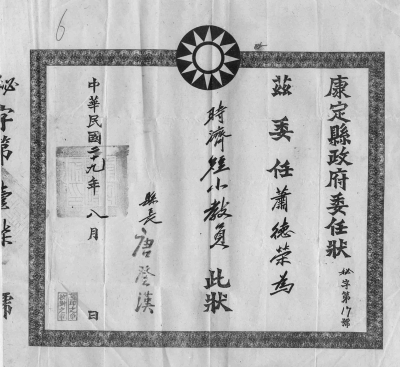 康定縣政府委任狀
秘字第17號
茲委任蕭德榮為
時濟短小教員 此狀
縣長 唐登漢
中華民國二十九年八月 日
秘字第壹柒號
6